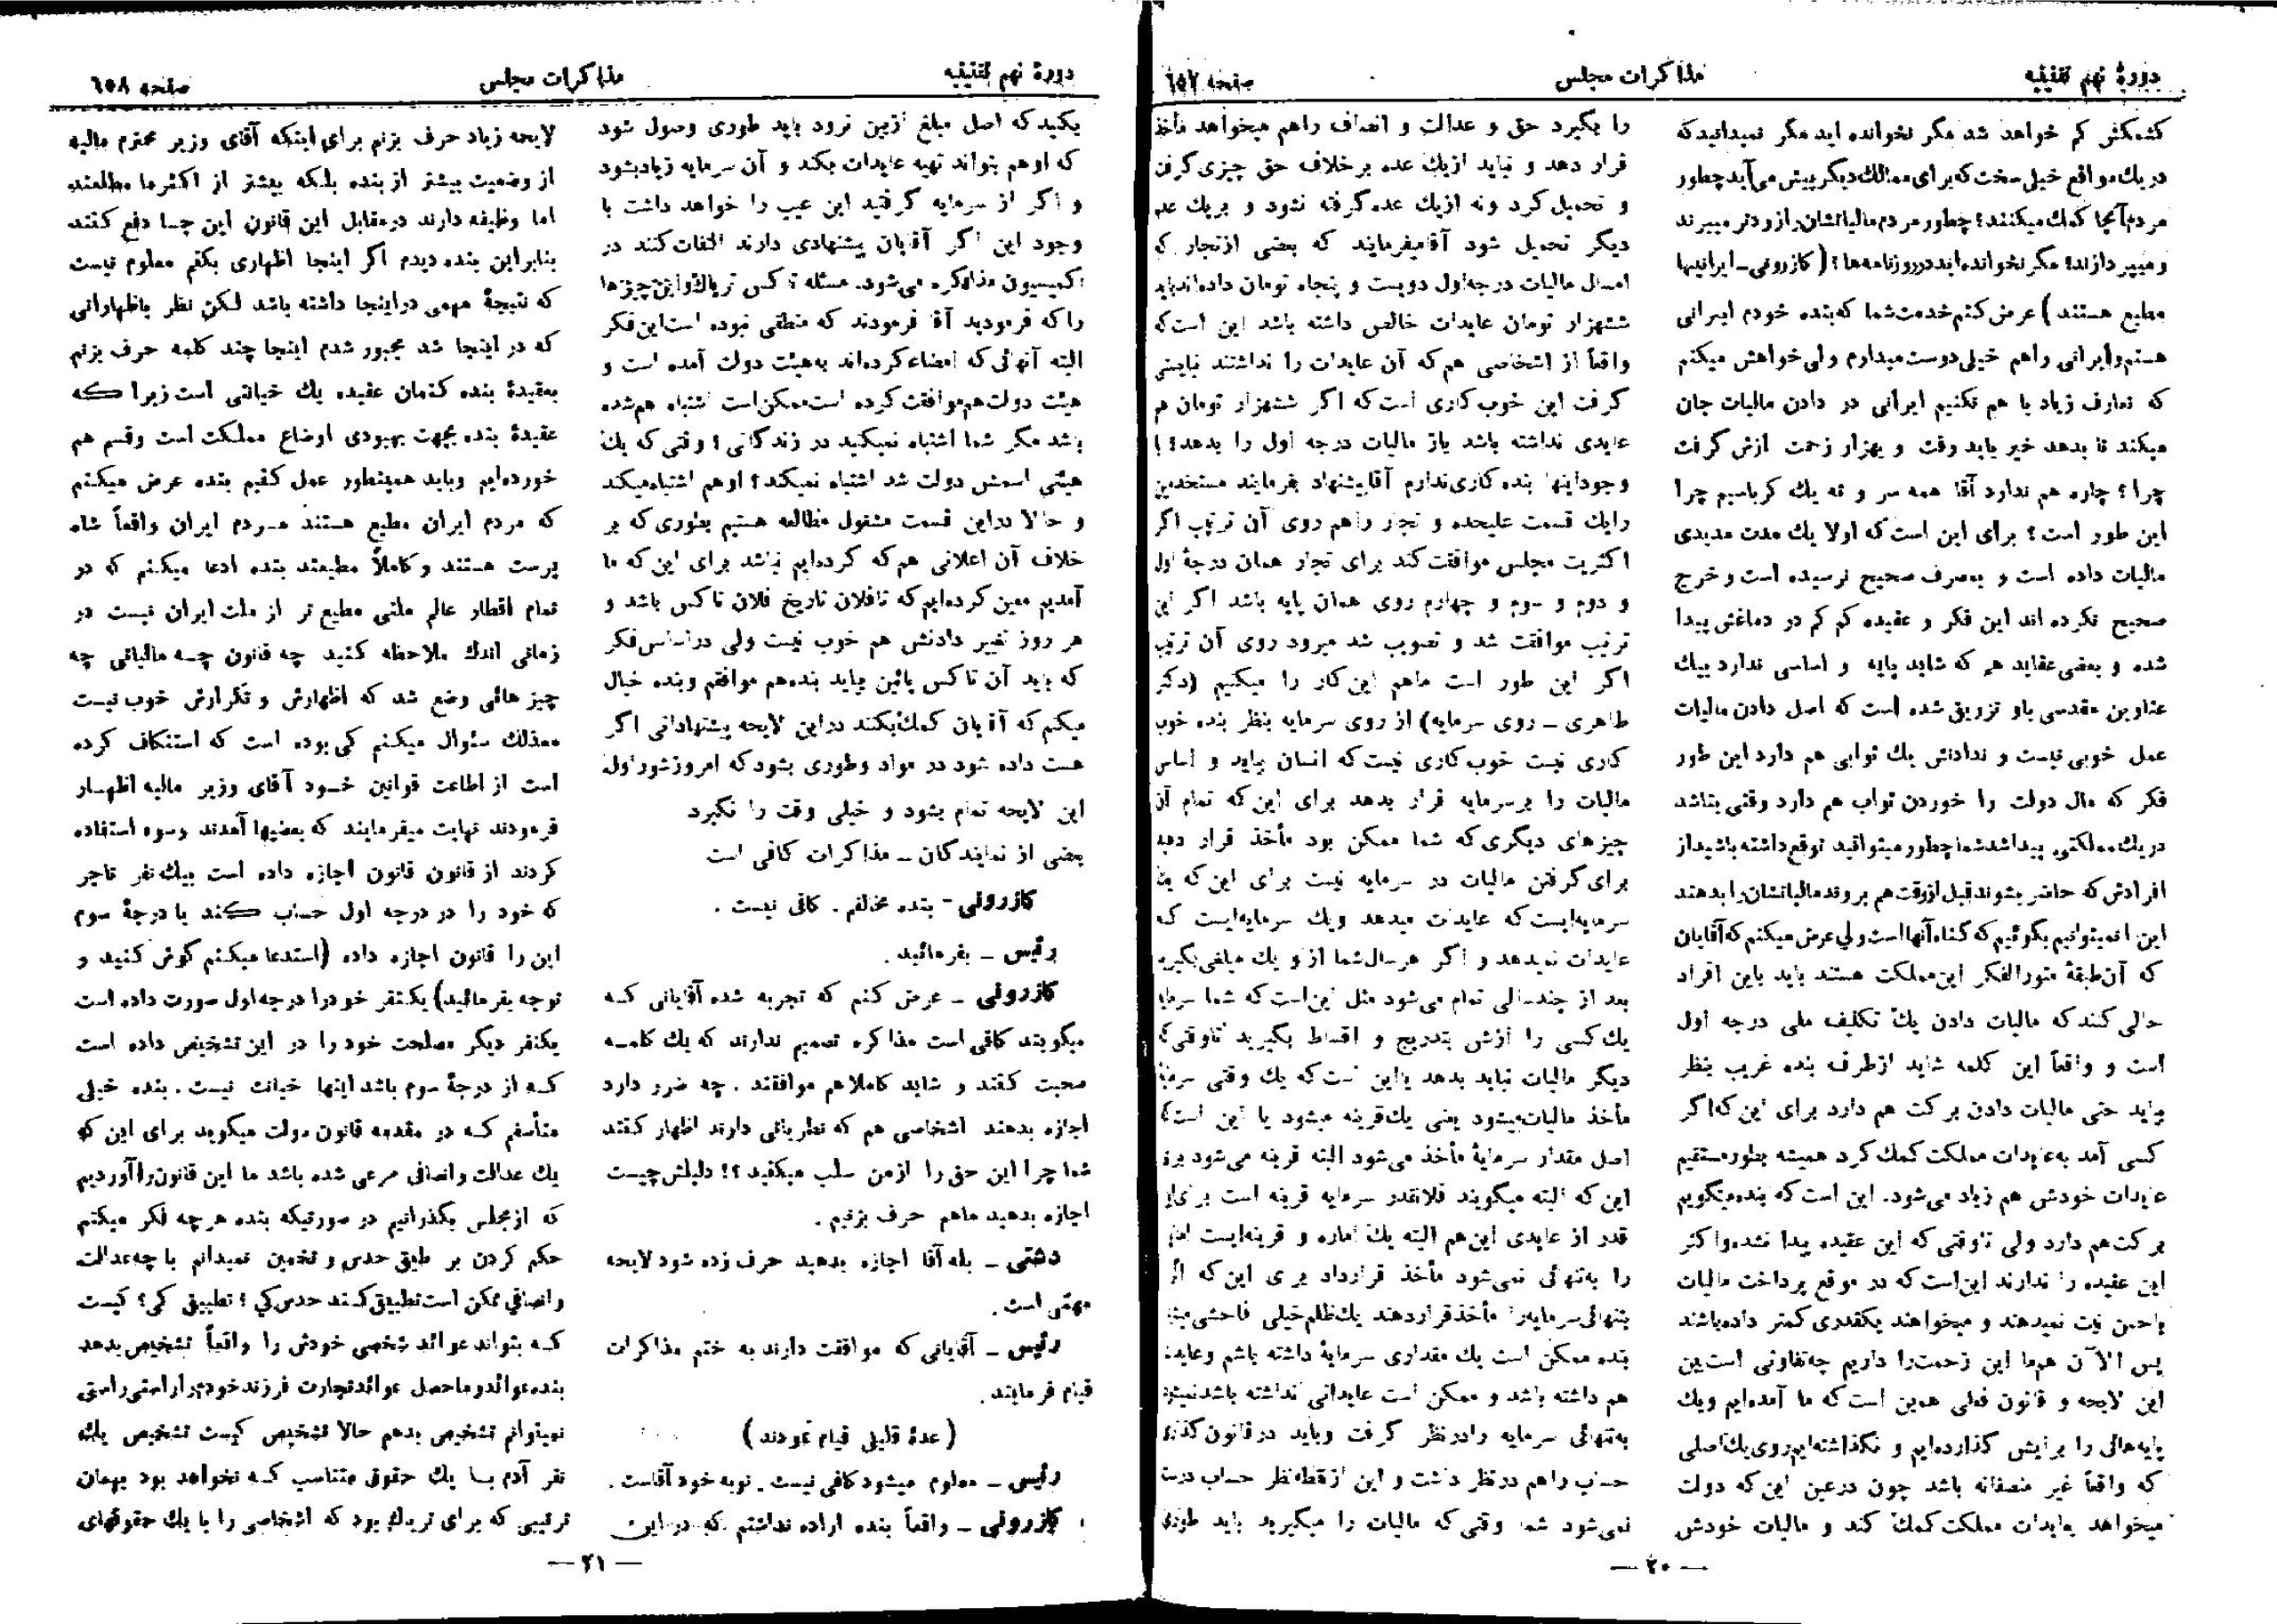 دورهٔ نهم تقنینیه
مذاکرات مجلس
صفحه ۶۵۷
کشمکش کم خواهد شد مگر نخوانده اید مگر نمیدانید که
در یك مواقع خیلی سخت که برای ممالك دیگر پیش می‌آید چطور
مردم آنجا کمك میکنند؟ چطور مردم مالیاتشان را زودتر میبرند
و میپردازند؟ مگر نخوانده‌اید در روزنامه‌ها؟ (کازرونی ـ ایرانیها
مطیع هستند) عرض کنم خدمت شما که بنده خودم ایرانی
هستم و ایرانی را هم خیلی دوست میدارم ولی خواهش میکنم
که تعارف زیاد با هم نکنیم ایرانی در دادن مالیات جان
میکند تا بدهد خیر باید رفت و بهزار زحمت ازش گرفت
چرا؟ چاره هم ندارد آقا همه سر و ته یك کرباسیم چرا
این طور است؟ برای این است که اولا یك مدت مدیدی
مالیات داده است و بمصرف صحیح نرسیده است و خرج
صحیح نکرده اند این فکر و عقیده کم کم در دماغش پیدا
شده و بعضی عقاید هم که شاید پایه و اساسی ندارد بیك
عناوین مقدسی باو تزریق شده است که اصل دادن مالیات
عمل خوبی نیست و ندادنش یك ثوابی هم دارد این طور
فکر که مال دولت را خوردن ثواب هم دارد وقتی بناشد
در یك مملکتی پیدا شد شما چطور میتوانید توقع داشته باشید از
افرادش که حاضر بشوند قبل از وقت هم بروند مالیاتشان را بدهند
این را نمیتوانیم بگوئیم که گناه آنها است ولی عرض میکنم که آقایان
که آن طبقهٔ منورالفکر این مملکت هستند باید باین افراد
حالی کنند که مالیات دادن یك تکلیف ملی درجه اول
است و واقعاً این کلمه شاید از طرف بنده غریب بنظر
بیاید حتی مالیات دادن برکت هم دارد برای این که اگر
کسی آمد به عایدات مملکت کمك کرد همیشه بطور مستقیم
عایدات خودش هم زیاد می‌شود. این است که بنده میگویم
برکت هم دارد ولی تا وقتی که این عقیده پیدا نشده و اکثر
این عقیده را ندارند این است که در موقع پرداخت مالیات
با حسن نیت نمیدهند و میخواهند یکقدری کمتر داده باشند
پس الآن هم ما این زحمت را داریم چه تفاوتی است بین
این لایحه و قانون فعلی همین است که ما آمده‌ایم و یك
پایه‌هائی را برایش گذارده‌ایم و نگذاشته‌ایم روی یك اصلی
که واقعاً غیر منصفانه باشد چون در عین این که دولت
میخواهد بعایدات مملکت کمك کند و مالیات خودش
را بگیرد حق و عدالت و انصاف را هم میخواهد مأخذ
قرار دهد و نباید از یك عده بر خلاف حق چیزی گرفت
و تحمیل کرد و نه از یك عده گرفته نشود و بر یك عده
دیگر تحمیل شود آقا میفرمایند که بعضی از تجار که
امسال مالیات درجه اول دویست و پنجاه تومان داده‌اند باید
ششهزار تومان عایدات خالص داشته باشد این است که
واقعاً از اشخاصی هم که آن عایدات را نداشتند نبایستی
گرفت این خوب کاری است که اگر ششهزار تومان هم
عایدی نداشته باشد باز مالیات درجه اول را بدهد؟ با
وجود اینها بنده کاری ندارم آقا پیشنهاد بفرمایند مستخدمین
را یك قسمت علیحده و تجار را هم روی آن ترتیب اگر
اکثریت مجلس موافقت کند برای تجار همان درجهٔ اول
و دوم و سوم و چهارم روی همان پایه باشد اگر این
ترتیب موافقت شد و تصویب شد میرود روی آن ترتیب
اگر این طور است ماهم این کار را میکنیم (دکتر
طاهری ـ روی سرمایه) از روی سرمایه بنظر بنده خوب
کاری نیست خوب کاری نیست که انسان بیاید و اساس
مالیات را بر سرمایه قرار بدهد برای این که تمام آن
چیزهای دیگری که شما ممکن بود مأخذ قرار دهید
برای گرفتن مالیات در سرمایه نیست برای این که یك
سرمایه‌ایست که عایدات میدهد و یك سرمایه‌ایست که
عایدات نمیدهد و اگر هر سال شما از او یك مبلغی بگیرید
بعد از چند سالی تمام می‌شود مثل این است که شما سرمایه
یك کسی را ازش بتدریج و اقساط بگیرید تا وقتی که
دیگر مالیات نباید بدهد با این است که یك وقتی سرمایه
مأخذ مالیات میشود یعنی یك قرینه میشود یا این است که
اصل مقدار سرمایهٔ مأخذ می‌شود البته قرینه می‌شود برای
این که البته میگویند فلانقدر سرمایه قرینه است برای
قدر از عایدی این هم البته یك اماره و قرینه‌ایست اما
را به تنهائی نمی‌شود مأخذ قرارداد برای این که اگر
بتنهائی سرمایه را مأخذ قرار دهند یك ظلم خیلی فاحشی میشود
بنده ممکن است یك مقداری سرمایهٔ داشته باشم و عایدات
هم داشته باشد و ممکن است عایداتی نداشته باشد نمیشود
به تنهائی سرمایه را در نظر گرفت و باید در قانون گذاری
حساب را هم در نظر داشت و این از نقطه نظر حساب درست
نمی‌شود شما وقتی که مالیات را میگیرید باید طوری
— ۲۰ —
دورهٔ نهم تقنینیه
مذاکرات مجلس
صفحه ۶۵۸
بکنید که اصل مبلغ از بین نرود باید طوری وصول شود
که او هم بتواند تهیه عایدات بکند و آن سرمایه زیاد بشود
و اگر از سرمایه گرفتید این عیب را خواهد داشت با
وجود این اگر آقایان پیشنهادی دارند التفات کنند در
کمیسیون مذاکره می‌شود. مسئله تاکس تریاك و این چیزها
را که فرمودید آقا فرمودند که منطقی نبوده است این فکر
البته آنهائی که امضاء کرده‌اند به هیئت دولت آمده است و
هیئت دولت هم موافقت کرده است ممکن است اشتباه هم شده
باشد مگر شما اشتباه نمیکنید در زندگانی؟ وقتی که یك
هیئتی اسمش دولت شد اشتباه نمیکند؟ او هم اشتباه میکند
و حالا در این قسمت مشغول مطالعه هستیم بطوری که بر
خلاف آن اعلانی هم که کرده‌ایم نباشد برای این که ما
آمدیم معین کرده‌ایم که تا فلان تاریخ فلان تاکس باشد و
هر روز تغییر دادنش هم خوب نیست ولی در اساس فکر
که باید آن تاکس پائین بیاید بنده هم موافقم و بنده خیال
میکنم که آقایان کمك بکنند در این لایحه پیشنهاداتی اگر
هست داده شود در مواد و طوری بشود که امروز شور اول
این لایحه تمام بشود و خیلی وقت را نگیرد
بعضی از نمایندگان ـ مذاکرات کافی است
کازرونی ـ بنده مخالفم. کافی نیست.
رئیس ـ بفرمائید.
کازرونی ـ عرض کنم که تجربه شده آقایانی که
میگویند کافی است مذاکره تصمیم ندارند که یك کلمه
صحبت کنند و شاید کاملا هم موافقند. چه ضرر دارد
اجازه بدهند اشخاصی هم که نظریاتی دارند اظهار کنند
شما چرا این حق را از من سلب میکنید؟! دلیلش چیست
اجازه بدهید ماهم حرف بزنیم.
دشتی ـ بله آقا اجازه بدهید حرف زده شود لایحه
مهمی است.
رئیس ـ آقایانی که موافقت دارند به ختم مذاکرات
قیام فرمایند.
(عدهٔ قلیلی قیام نمودند)
رئیس ـ معلوم میشود کافی نیست. نوبه خود آقاست.
کازرونی ـ واقعاً بنده اراده نداشتم که در این
لایحه زیاد حرف بزنم برای اینکه آقای وزیر محترم مالیه
از وضعیت بیشتر از بنده بلکه بیشتر از اکثر ما مطلعند
اما وظیفه دارند در مقابل این قانون این جا دفع کنند
بنابراین بنده دیدم اگر اینجا اظهاری بکنم معلوم نیست
که نتیجهٔ مهمی در اینجا داشته باشد لکن نظر باظهاراتی
که در اینجا شد مجبور شدم اینجا چند کلمه حرف بزنم
بعقیدهٔ بنده کتمان عقیده یك خیانتی است زیرا که
عقیدهٔ بنده بجهت بهبودی اوضاع مملکت است و قسم هم
خورده‌ایم و باید همینطور عمل کنیم بنده عرض میکنم
که مردم ایران مطیع هستند مردم ایران واقعاً شاه
پرست هستند و کاملاً مطیعند بنده ادعا میکنم که در
تمام اقطار عالم ملتی مطیع تر از ملت ایران نیست در
زمانی اندك ملاحظه کنید چه قانون چه مالیاتی چه
چیز هائی وضع شد که اظهارش و تکرارش خوب نیست
معذلك سئوال میکنم کی بوده است که استنکاف کرده
است از اطاعت قوانین خود آقای وزیر مالیه اظهار
فرمودند نهایت میفرمایند که بعضیها آمدند و سوء استفاده
کردند از قانون قانون اجازه داده است بیك نفر تاجر
که خود را در درجه اول حساب کند یا درجهٔ سوم
این را قانون اجازه داده (استدعا میکنم گوش کنید و
توجه بفرمائید) یکنفر خود را درجه اول صورت داده است
یکنفر دیگر مصلحت خود را در این تشخیص داده است
که از درجهٔ سوم باشد اینها خیانت نیست. بنده خیلی
متأسفم که در مقدمه قانون دولت میگوید برای این که
یك عدالت و انصافی مرعی شده باشد ما این قانون را آوردیم
که از مجلس بگذرانیم در صورتیکه بنده هر چه فکر میکنم
حکم کردن بر طبق حدس و تخمین نمیدانم با چه عدالت
و انصافی ممکن است تطبیق کند حدس کی؟ تطبیق کی؟ کیست
که بتواند عوائد شخصی خودش را واقعاً تشخیص بدهد
بنده عوائد و ماحصل عوائد تجارت فرزند خودم را راستی راستی
نمیتوانم تشخیص بدهم حالا تشخیص کیست تشخیص یك
نفر آدم با یك حقوق متناسب که نخواهد بود بهمان
ترتیبی که برای تریاك بود که اشخاصی را با یك حقوقهای
— ۲۱ —